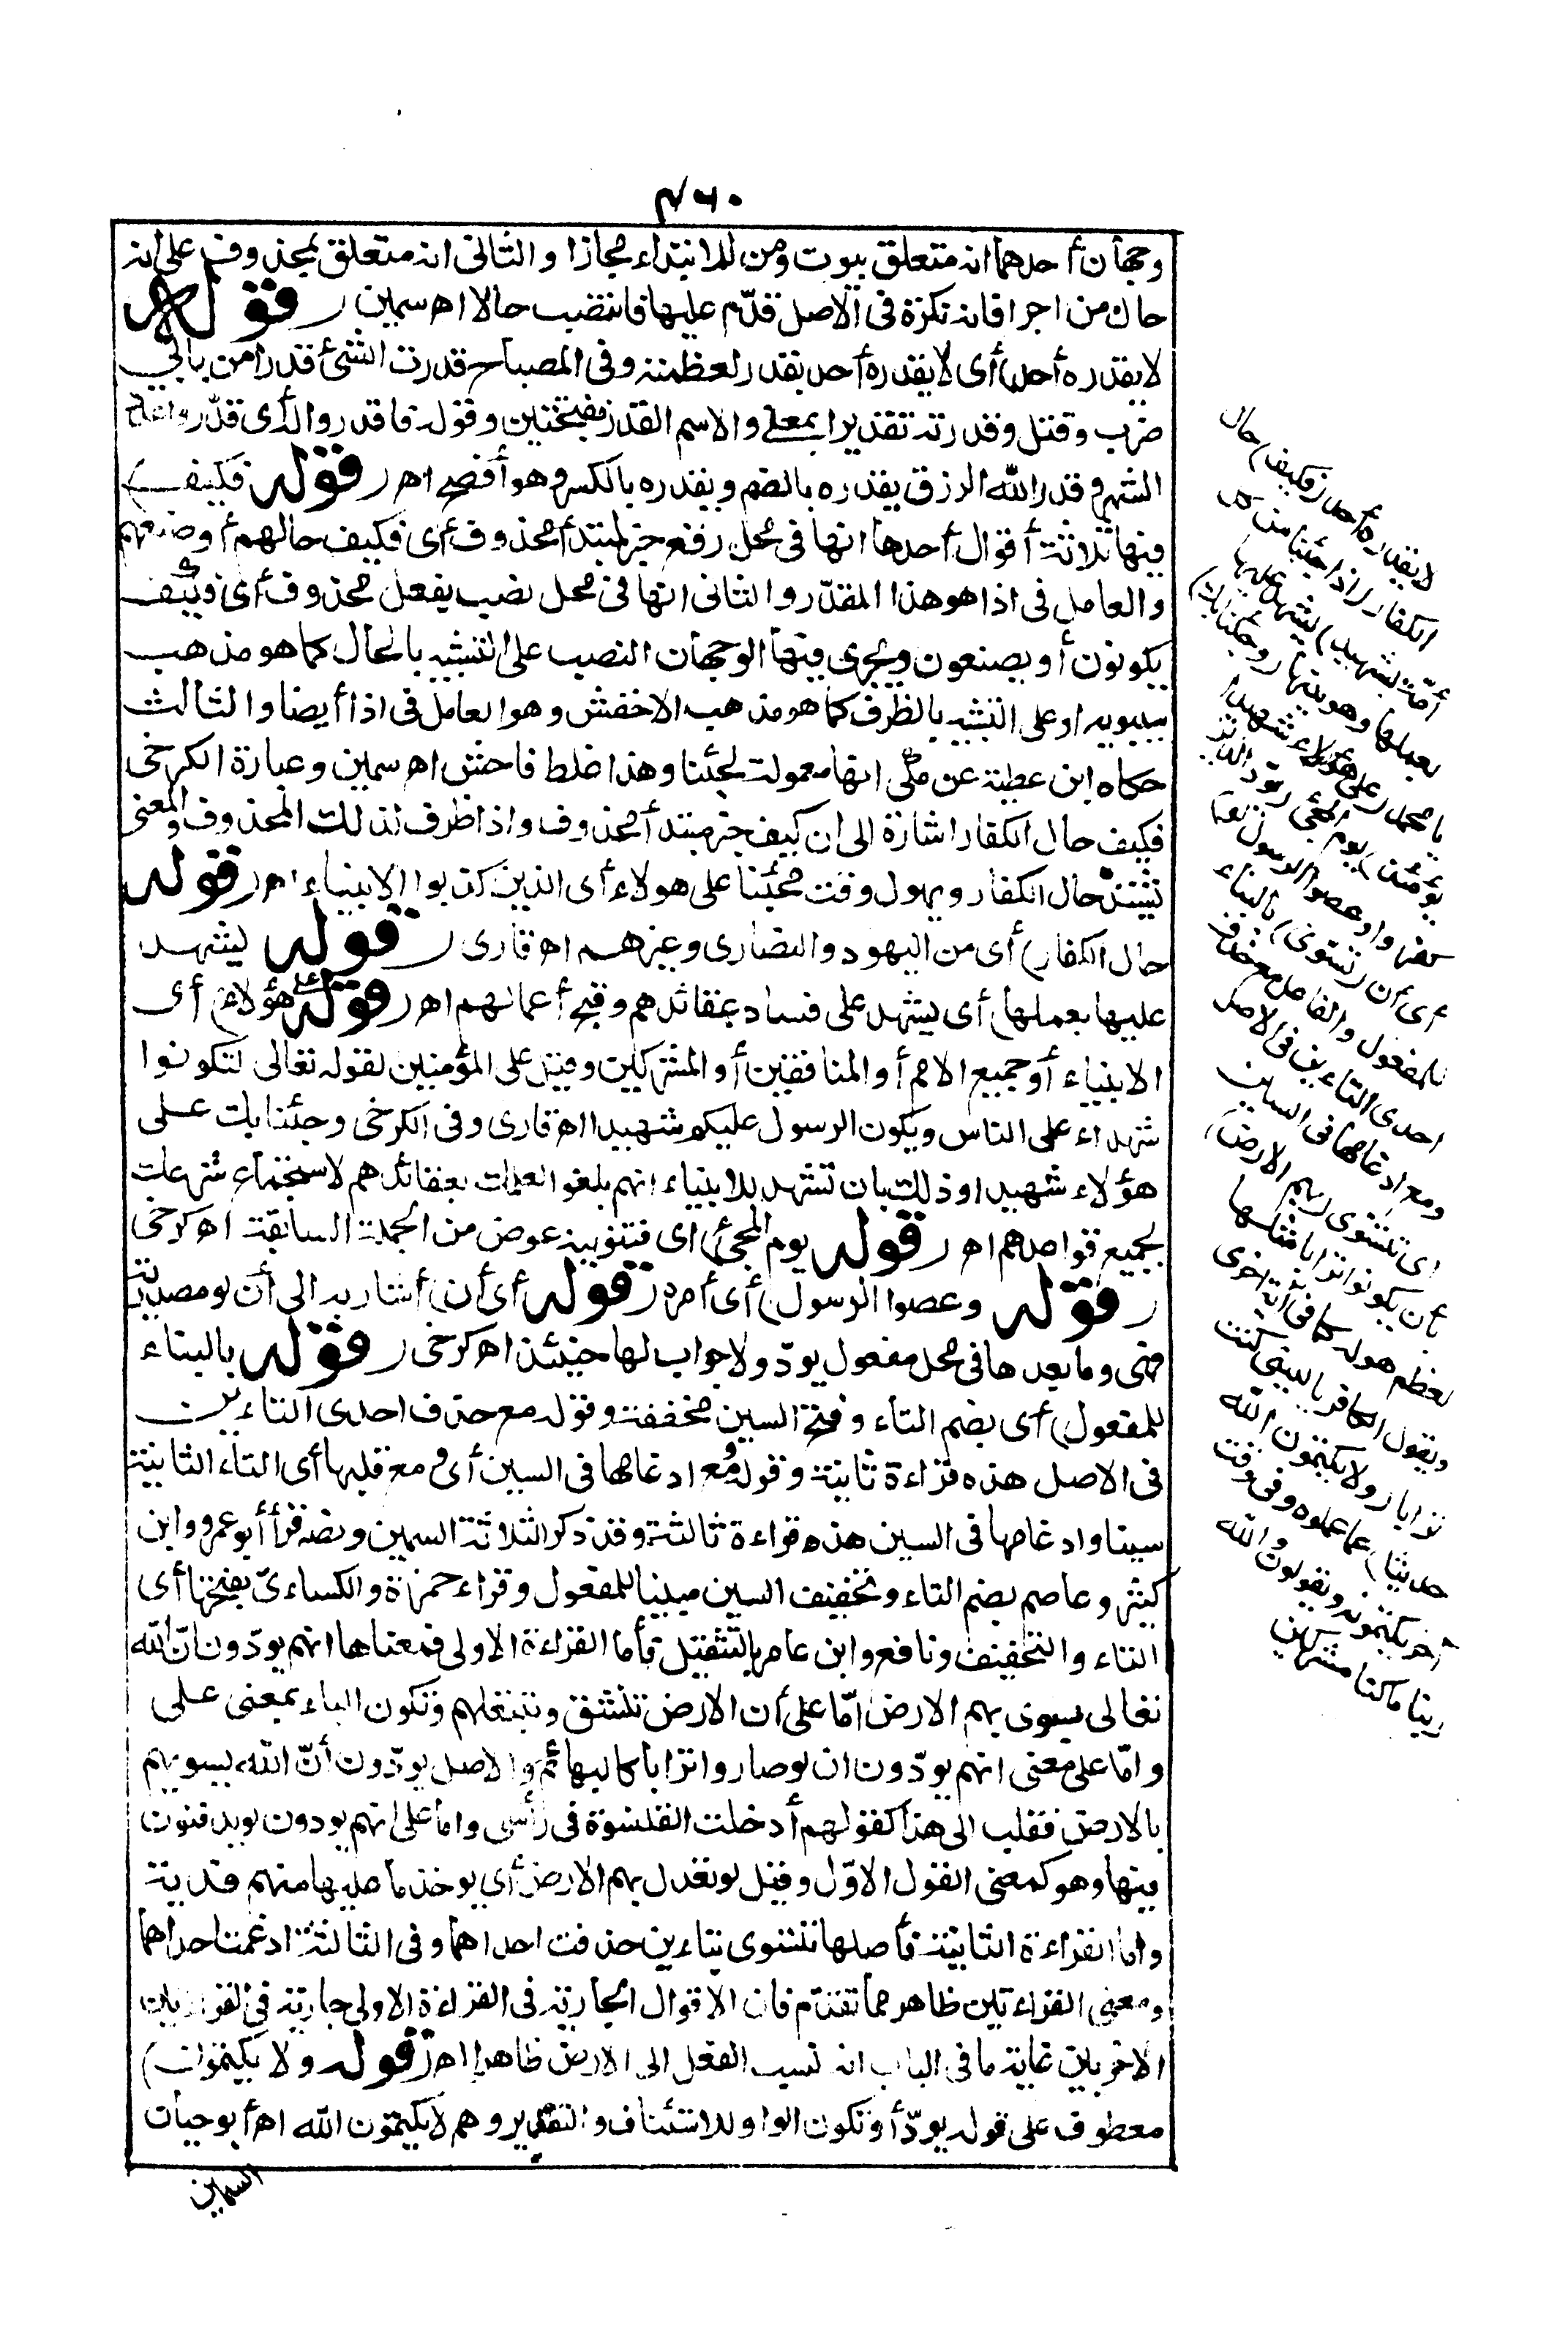 ٤٦٠
وجهان أحدهما انه متعلق بيوت ومن للابتداء مجازا والثانى انه متعلق بمحذوف على انه
حال من اجرا فانه نكرة فى الاصل قدّم عليها فانتصب حالا اه سمين (قوله
لا يقدره أحد) أى لا يقدره أحد بقدر لعظمته وفى المصباح قدرت الشئ قدرا من بابى
ضرب وقتل وقدرته تقديرا بمعنى والاسم القدر بفتحتين وقوله فاقدروا له أى قدّروا عدد
الشهر وقدر الله الرزق يقدره بالضم ويقدره بالكسر وهو أفصح اه (قوله فكيف)
فيها ثلاثة أقوال أحدها انها فى محل رفع خبر لمبتدأ محذوف أى فكيف حالهم أو صنعهم
والعامل فى اذا هو هذا المقدّر والثانى انها فى محل نصب بفعل محذوف أى فكيف
يكونون أو يصنعون ويجرى فيها الوجهان النصب على التشبيه بالحال كما هو مذهب
سيبويه او على التشبيه بالظرف كما هو مذهب الاخفش وهو العامل فى اذا أيضا والثالث
حكاه ابن عطية عن مكّى انها معمولة لجئنا وهذا غلط فاحش اه سمين وعبارة الكرخى
فكيف حال الكفار اشارة الى ان كيف خبر مبتدأ محذوف واذا ظرف لذلك المحذوف والمعنى
تشتدّ حال الكفار ويهول وقت مجئنا على هولاء أى الذين كذبوا الانبياء اه (قوله
حال الكفار) أى من اليهود والنصارى وغيرهم اه قارى (قوله يشهد
عليها بعملها) أى يشهد على فساد عقائدهم وقبح أعمالهم اه (قوله على هؤلاء) أى
الانبياء أو جميع الامم أو المنافقين أو المشركين وقيل على المؤمنين لقوله تعالى لتكونوا
شهداء على الناس ويكون الرسول عليكم شهيدا اه قارى وفى الكرخى وجئنا بك على
هؤلاء شهيدا وذلك بان تشهد للانبياء انهم بلغوا لعلمك بعقائدهم لاستجماع شرعك
لجميع قواعدهم اه (قوله يوم المجئ) اى فتنوينه عوض من الجملة السابقة اه كرخى
(قوله وعصوا الرسول) أى أمره (قوله أى أن) أشار به الى أن لو مصدرية
فهى وما بعدها فى محل مفعول يودّ ولا جواب لها حينئذ اه كرخى (قوله بالبناء
للمفعول) أى بضم التاء وفتح السين مخففة وقوله مع حذف احدى التاءين
فى الاصل هذه قراءة ثانية وقوله ومع ادغامها فى السين أى ومع قلبها أى التاء الثانية
سينا وادغامها فى السين هذه قراءة ثالثة وقد ذكر الثلاثة السمين ونصه قرأ أبو عمرو وابن
كثير وعاصم بضم التاء وتخفيف السين مبنيا للمفعول وقراء حمزة والكساءىّ بفتحها أى
التاء والتخفيف ونافع وابن عامر بالتثقيل فأما القراءة الاولى فمعناها انهم يودّون انّ الله
تعالى يسوى بهم الارض امّا على أن الارض تنشق وتبتلعهم وتكون الباء بمعنى على
وامّا على معنى انهم يودّون ان لو صاروا ترابا كالبهائم والاصل يودّون أنّ الله يسويهم
بالارض فقلب الى هذا كقولهم أدخلت القلنسوة فى رأسى واما على انهم يودون لو يدفنون
فيها وهو كمعنى القول الاوّل وقيل لو تعدل بهم الارض أى يوخذ ما عليها منهم فدية
واما القراءة الثانية فأصلها تتسوى بتاءين حذفت احداهما وفى الثالثة ادغمت احداهما
ومعنى القراءتين ظاهر مما تقدّم فان الاقوال الجارية فى القراءة الاولى جارية فى القراءتين
الاخريين غاية ما فى الباب انه نسب الفعل الى الارض ظاهرا اه (قوله ولا يكتمون)
معطوف على قوله يودّ أو تكون الواو للاستئناف والتقدير وهم لا يكتمون الله اه أبو حيان
السمين
لا يقدره أحد (فكيف) حال
الكفار (اذا جئنا من كل
أمّة بشهيد) يشهد عليها
بعملها وهو نبيها (وجئنا بك)
يا محمد (على هؤلاء شهيدا
يومئذ) يوم المجئ (يودّ الذين
كفروا وعصوا الرسول لو)
أى أن (تسوى) بالبناء
للمفعول والفاعل مع حذف
احدى التاءين فى الاصل
ومع ادغامها فى السين
اى تتسوى (بهم الارض)
بأن يكونوا ترابا مثلها
لعظم هوله كما فى آية اخرى
ويقول الكافر يا ليتنى كنت
ترابا (ولا يكتمون الله
حديثا) عما عملوه وفى وقت
آخر يكتمونه ويقولون والله
ربنا ما كنا مشركين